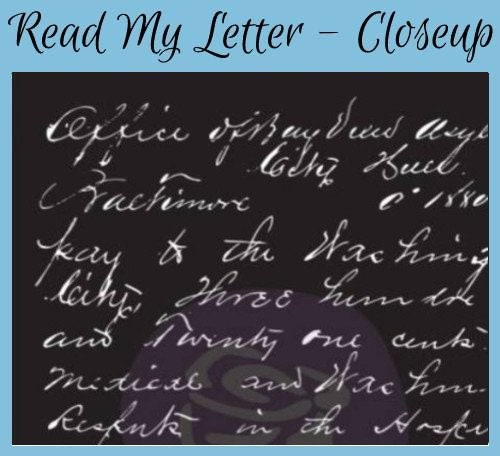 Read My Letter – Closeup
Office of Bay View Asy
City Hall
Baltimore 1880
pay to the Washing
City, Three hundre
and Twenty one cents.
Medical and Washin
in the Hospi